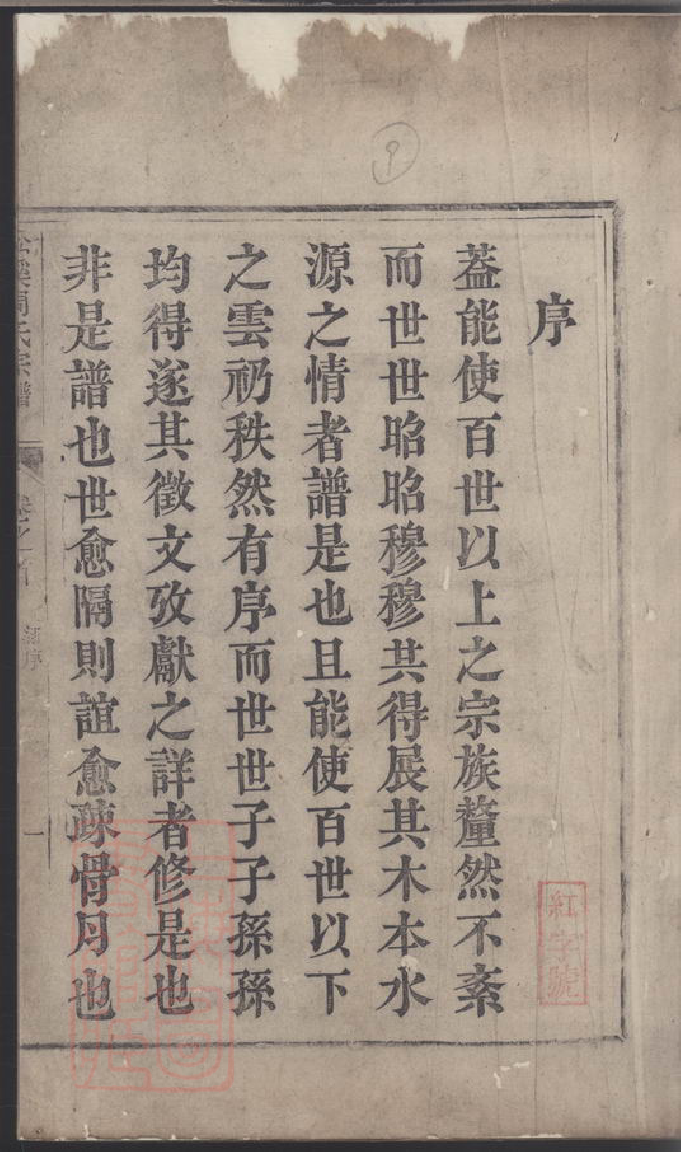 序
葢能使百世以上之宗族釐然不紊
而世世昭昭穆穆共得展其木本水
源之情者譜是也且能使百世以下
之雲礽秩然有序而世世子子孫孫
均得遂其徵文攷獻之詳者修是也
非是譜也世愈隔則誼愈疎骨月也
氏宗譜
序
一
紅字號
9